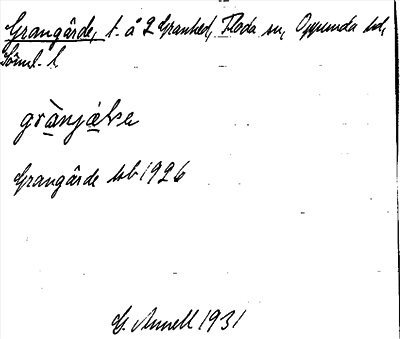 Grangärde, t. å 2 Granhed, Floda sn, Oppunda hd,
Sörml. l
Grangärde tob 1926
G. Annell 1931